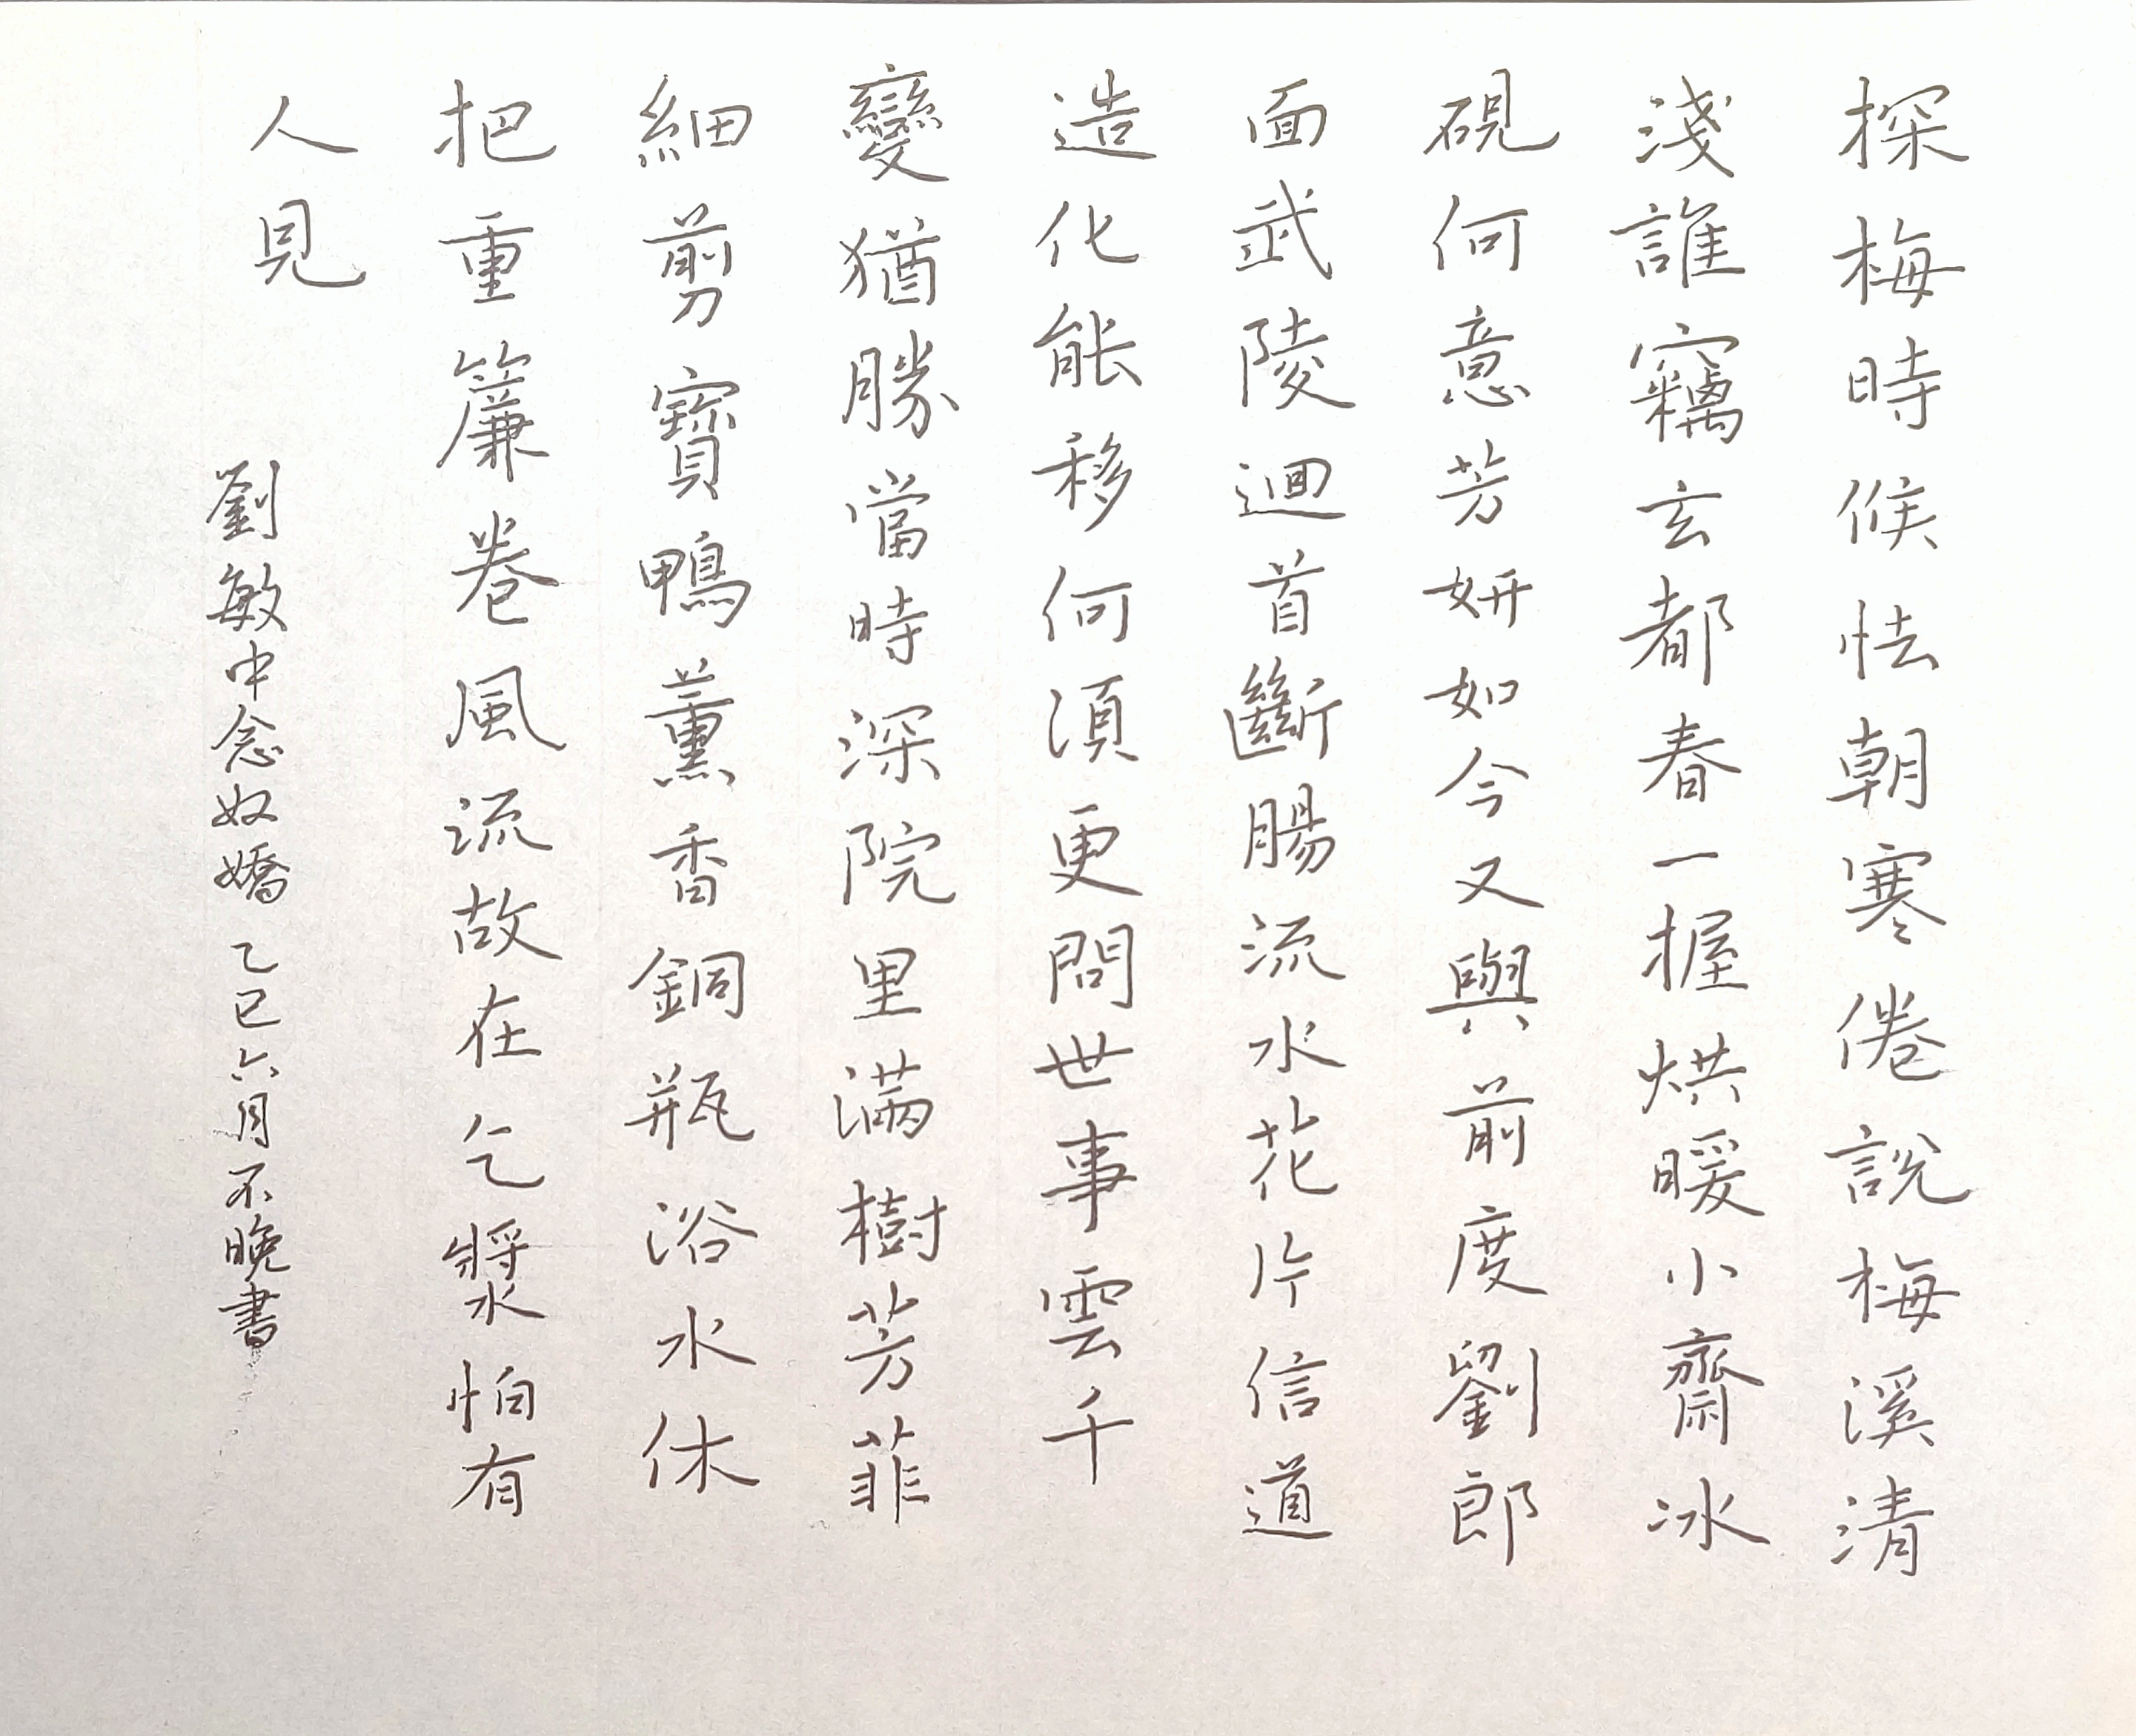 探梅時候怯朝寒倦說梅溪清
淺誰竊玄都春一握烘暖小齋冰
硯何意芳妍如今又與前度劉郎
面武陵迴首斷腸流水花片信道
造化能移何須更問世事雲千
變猶勝當時深院里滿樹芳菲
細剪寶鴨薰香銅瓶浴水休
把重簾卷風流故在乞漿怕有
人見
劉敏中念奴嬌 乙巳六月不晚書